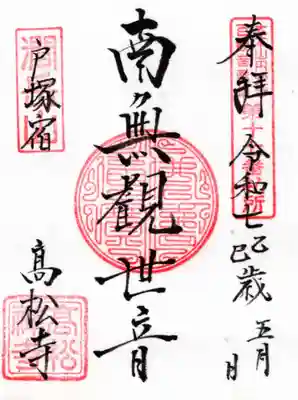 奉拝 令和七乙巳歳 五月 日
南無觀世音
戸塚宿
高松寺